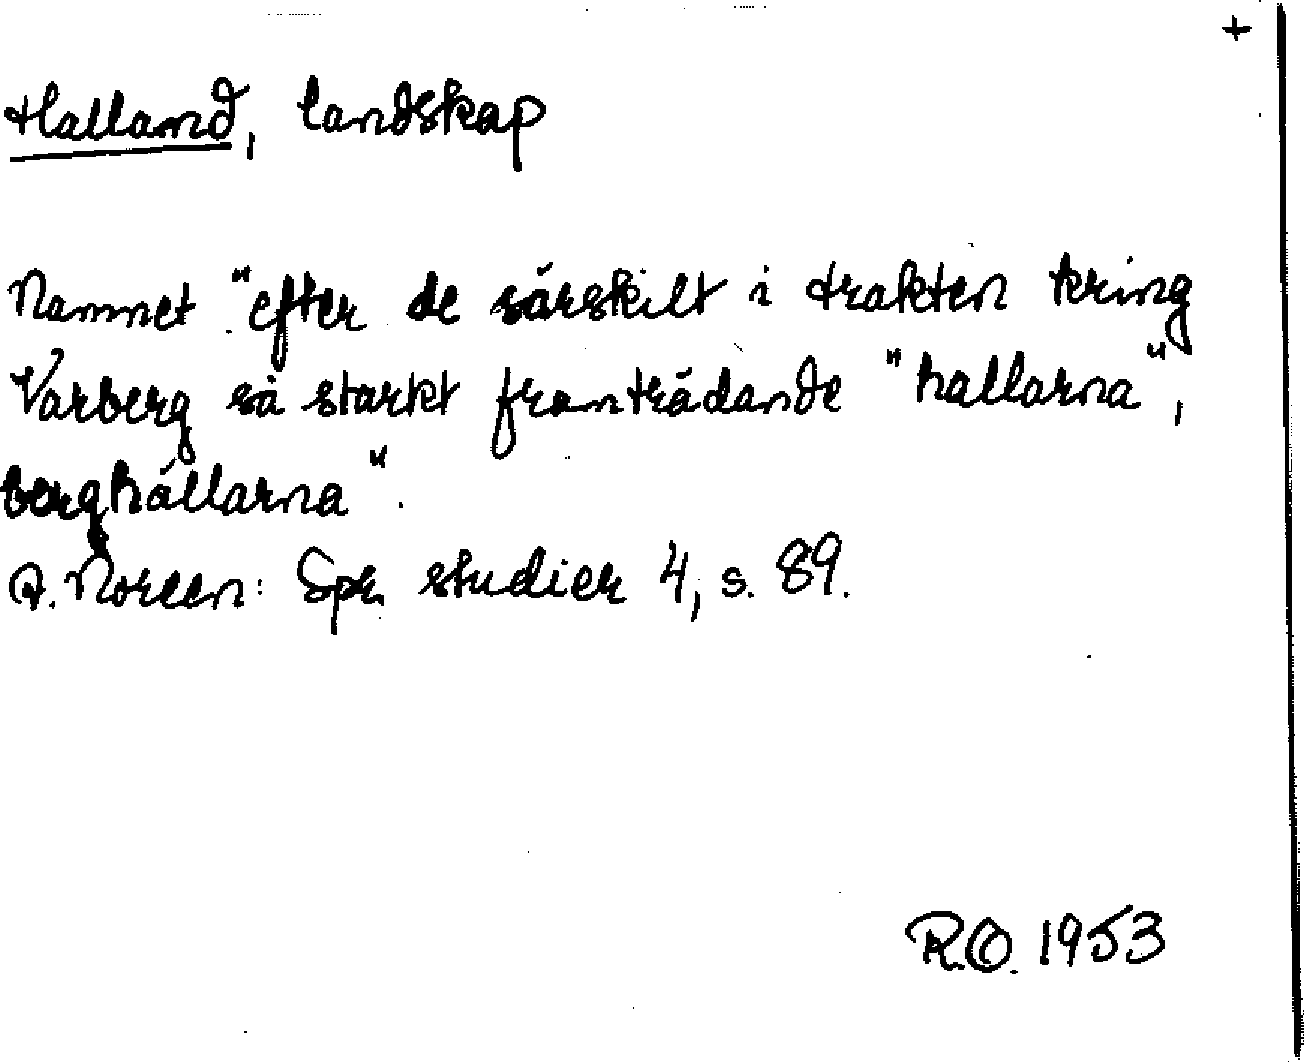 +
Halland, landskap
Namnet "efter de särskilt i trakten kring
Varberg så starkt framträdande "hallarna",
berghällarna".
A. Noreen: Spr. studier 4, s. 89.
R.O. 1953